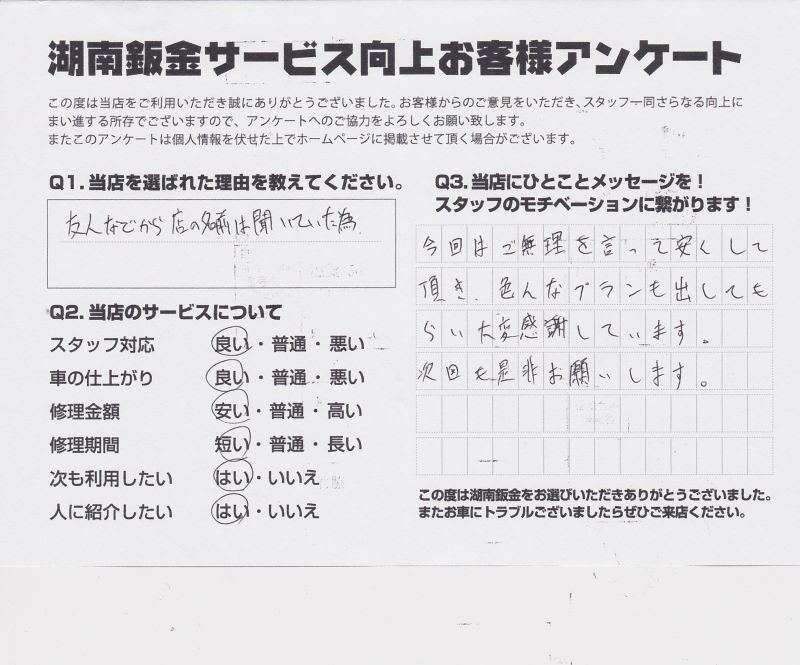 湖南鈑金サービス向上お客様アンケート
この度は当店をご利用いただき誠にありがとうございました。お客様からのご意見をいただき、スタッフ一同さらなる向上に
まい進する所存でございますので、アンケートへのご協力をよろしくお願い致します。
またこのアンケートは個人情報を伏せた上でホームページに掲載させて頂く場合がございます。
Q1.当店を選ばれた理由を教えてください。
友人などから店の名前は聞いていた為
Q2.当店のサービスについて
スタッフ対応 良い・普通・悪い
車の仕上がり 良い・普通・悪い
修理金額 安い・普通・高い
修理期間 短い・普通・長い
次も利用したい はい・いいえ
人に紹介したい はい・いいえ
Q3.当店にひとことメッセージを！
スタッフのモチベーションに繋がります！
今回はご無理を言って安くして
頂き、色んなプランも出しても
らい大変感謝しています。
次回も是非お願いします。
この度は湖南鈑金をお選びいただきありがとうございました。
またお車にトラブルございましたらぜひご来店ください。